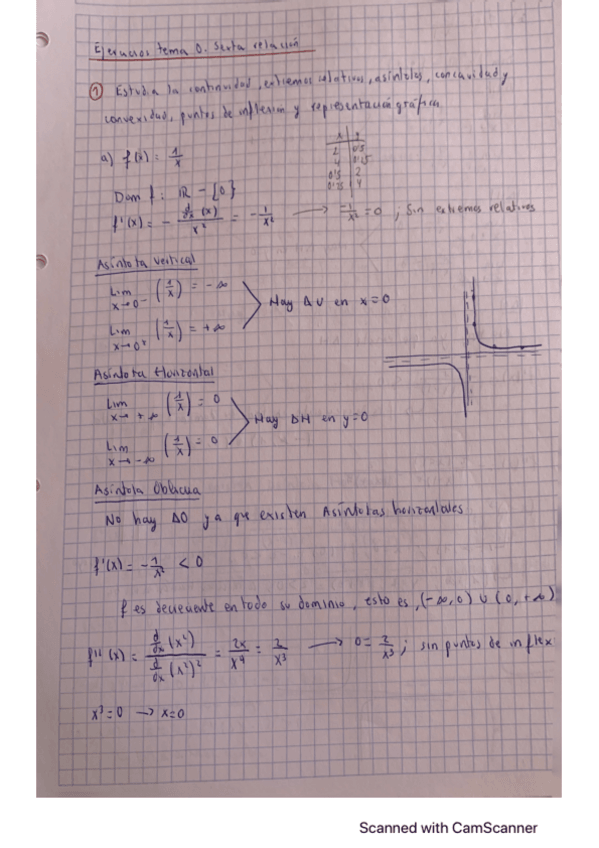 Ejercicios tema 0. Sexta relación
① Estudia la continuidad, extremos relativos, asíntotas, concavidad y
convexidad, puntos de inflexión y representación gráfica
a) f(x) = 1/x
x | y
2 | 0'5
4 | 0'25
0'5 | 2
0'25 | 4
Dom f: ℝ - {0}
f'(x) = - d/dx (x) / x² = - 1/x² → -1/x² = 0 ; Sin extremos relativos
Asíntota vertical
Lim x→0⁻ (1/x) = -∞
Hay AV en x=0
Lim x→0⁺ (1/x) = +∞
Asíntota Horizontal
Lim x→+∞ (1/x) = 0
Hay AH en y=0
Lim x→-∞ (1/x) = 0
Asíntota Oblicua
No hay AO ya que existen Asíntotas horizontales
f'(x) = - 1/x² < 0
f es decreciente en todo su dominio, esto es, (-∞,0) ∪ (0,+∞)
f''(x) = d/dx (x²) / d/dx (x²)² = 2x/x⁴ = 2/x³ → 0 = 2/x³ ; sin puntos de inflex
x³=0 → x=0
Scanned with CamScanner